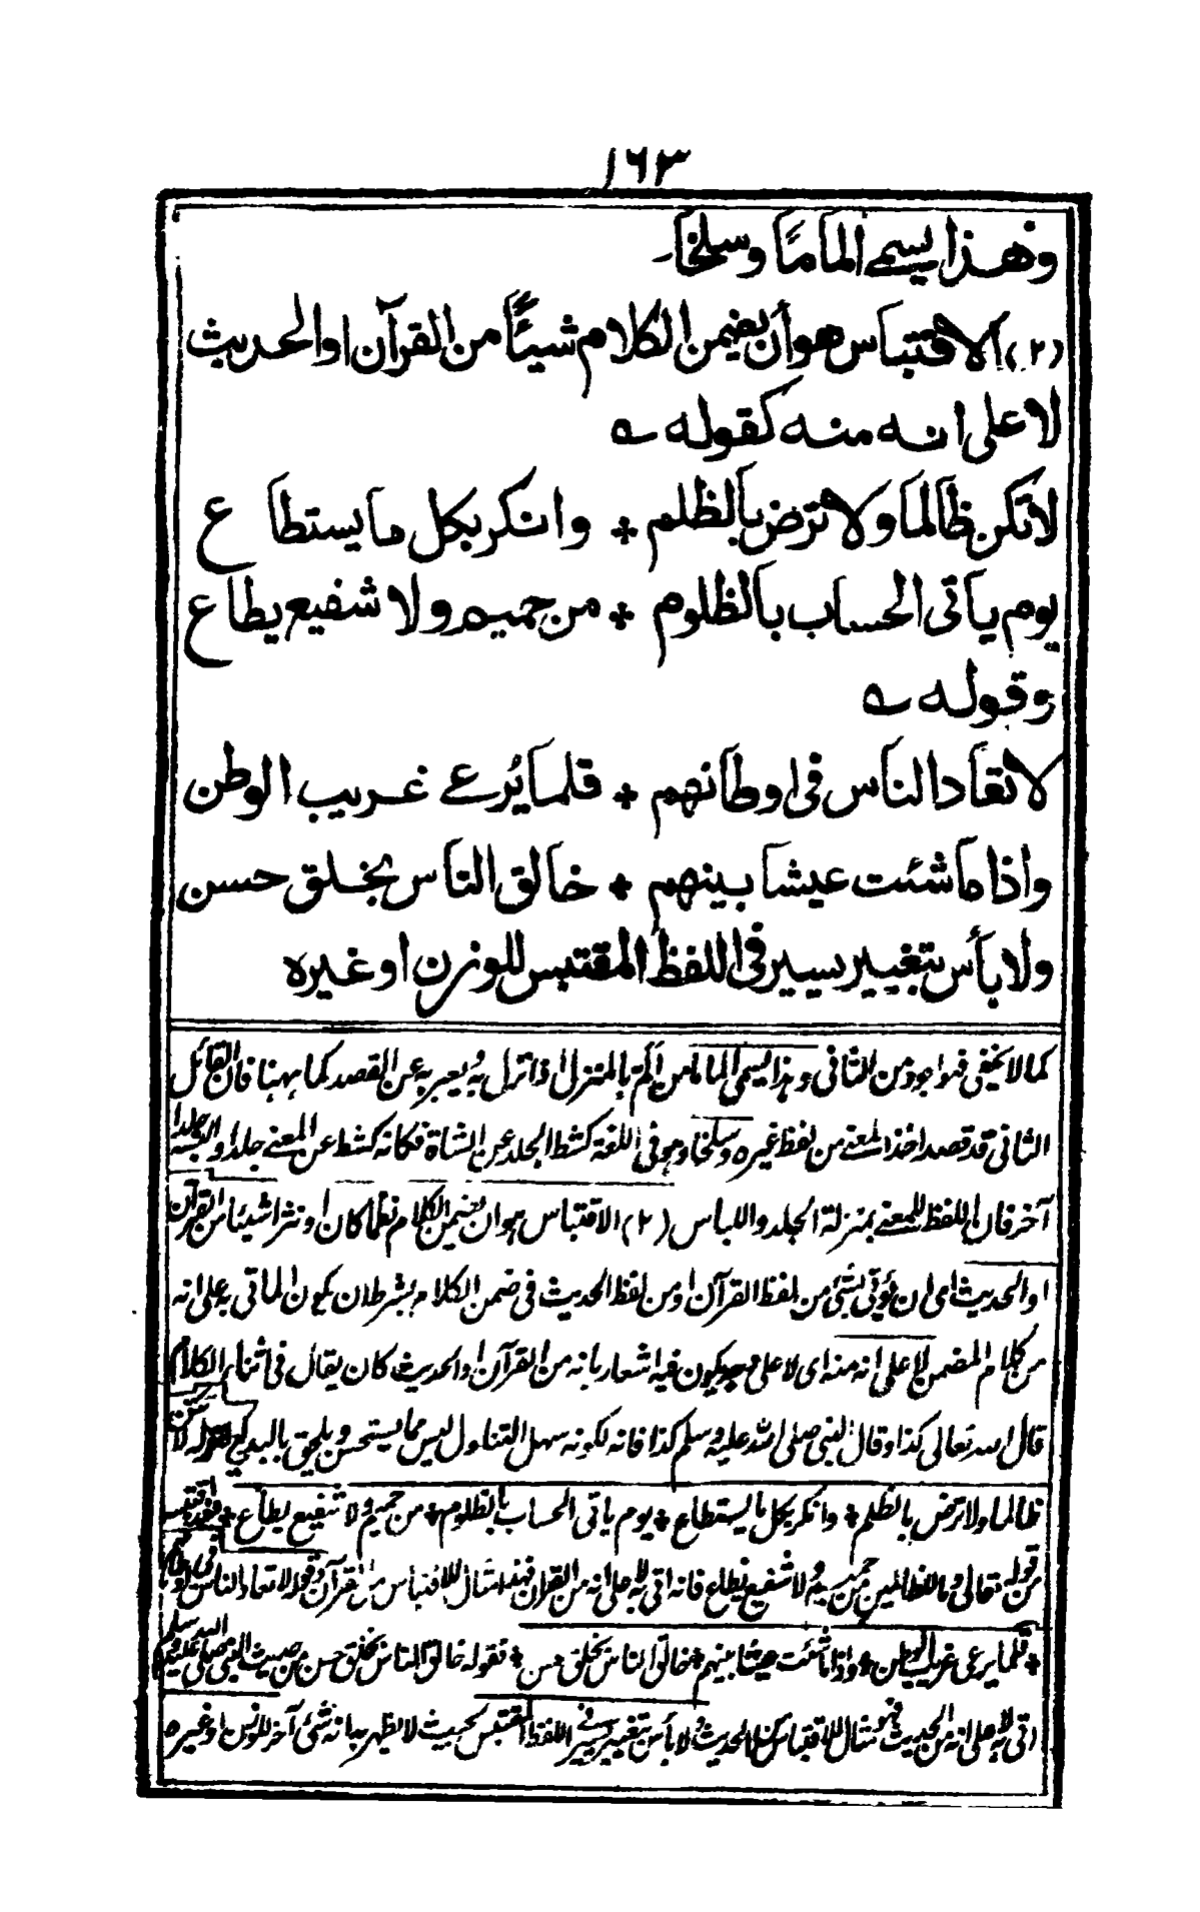 ١٦٣
وهذا يسمى الماما وسلخا۔
(٢) الاقتباس هو أن يضمن الكلام شيئًا من القرآن او الحديث
لا على انه منه كقوله ے
لا تكن ظالما ولا ترض بالظلم * وانكر بكل ما يستطاع
يوم ياتى الحساب بالظلوم * من حميم ولا شفيع يطاع
وقوله ے
لا تعاد الناس فى اوطانهم * قلما يُرعى غريب الوطن
واذا ما شئت عيشا بينهم * خالق الناس بخلق حسن
ولا بأس بتغيير يسير فى اللفظ المقتبس للوزن او غيره
كما لا يخفى فهو اجود من الثانى وهذا يسمى الماما من الم بالمنزل اذا نزل به يعبر به عن القصد كما ههنا فان القائل
الثانى قد قصد اخذ المعنى من لفظ غيره وسلخا وهو فى اللغة كشط الجلد عن الشاة فكانه كشط عن المعنى جلدا والبسه جلدا
آخر فان اللفظ للمعنى بمنزلة الجلد واللباس (٢) الاقتباس هو ان يضمن الكلام نظما كان او نثرا شيئا من القرآن
او الحديث اى ان يؤتى بشئ من لفظ القرآن او من لفظ الحديث فى ضمن الكلام بشرط ان يكون الماتى به على انه
من كلام المضمن لا على انه منه اى لا على وجه يكون فيه اشعار بانه من القرآن او الحديث كان يقال فى اثناء الكلام
قال الله تعالى كذا وقال النبى صلى الله عليه وسلم كذا فانه لكونه سهل التناول ليس مما يستحسن ويلحق بالبديع كقوله لا تكن
ظالما ولا ترض بالظلم * وانكر بكل ما يستطاع * يوم ياتى الحساب بالظلوم * من حميم ولا شفيع يطاع * فقد اقتبس
من قوله تعالى وما للظالمين من حميم ولا شفيع يطاع فانه اتى به لا على انه من القرآن فهذا مثال للاقتباس من القرآن وقوله لا تعاد الناس فى اوطانهم
* قلما يرعى غريب الوطن * واذا ما شئت عيشا بينهم * خالق الناس بخلق حسن * فقوله خالق الناس بخلق حسن من حديث النبى صلى الله عليه وسلم
اتى به لا على انه من الحديث فهو مثال للاقتباس من الحديث ولا بأس بتغيير يسير فى اللفظ المقتبس بحيث لا يظهر به انه شئ آخر للوزن او غيره